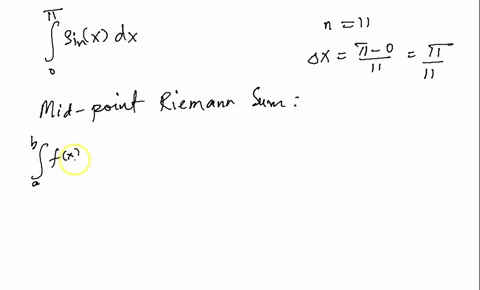 ∫₀^π Sin(x) dx
n = 11
Δx = (π-0)/11 = π/11
Mid-point Riemann Sum :
∫ₐᵇ f(x)